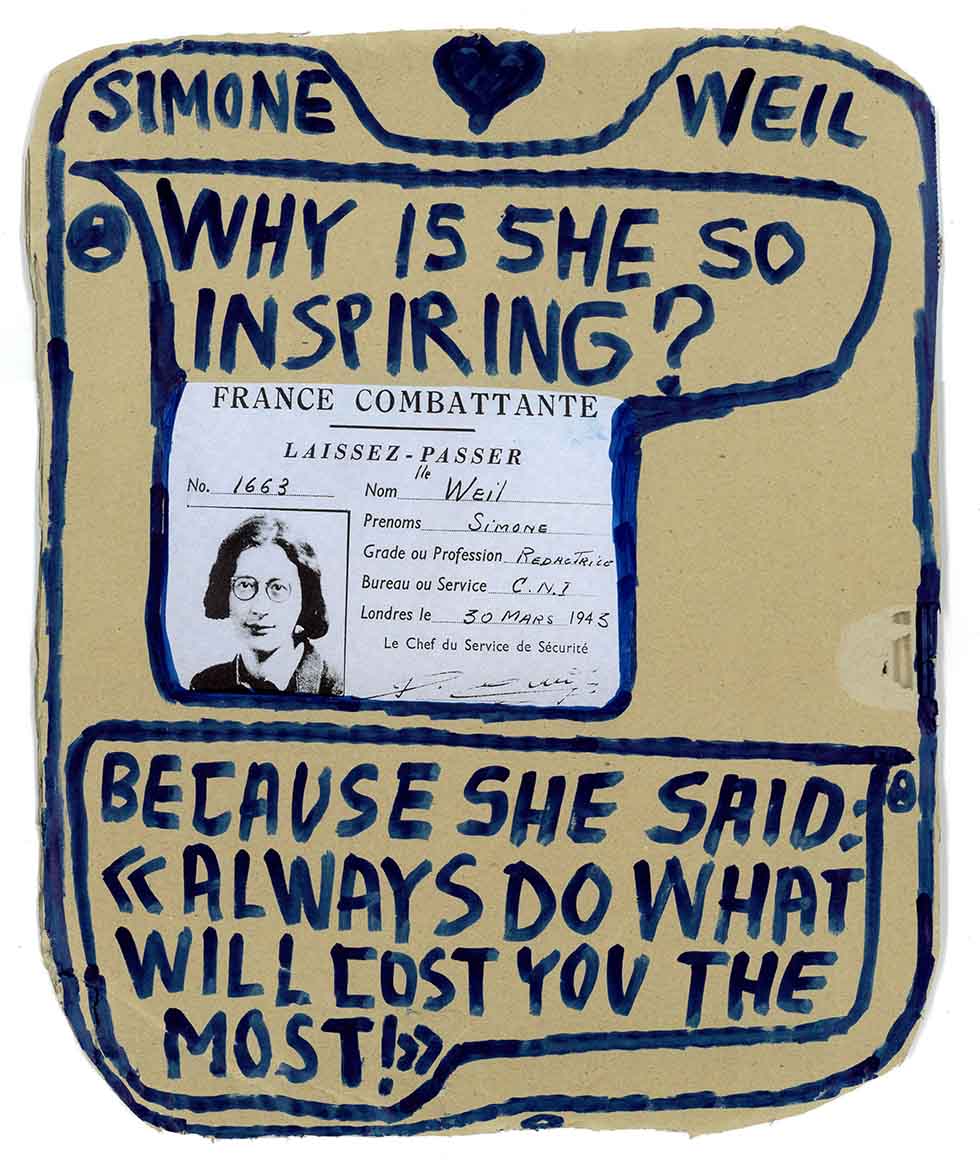 SIMONE WEIL
WHY IS SHE SO
INSPIRING?
FRANCE COMBATTANTE
LAISSEZ-PASSER
No. 1663
Nom lle Weil
Prenoms SIMONE
Grade ou Profession REDACTRICE
Bureau ou Service C.N.I
Londres le 30 MARS 1943
Le Chef du Service de Sécurité
BECAUSE SHE SAID:
«ALWAYS DO WHAT
WILL COST YOU THE
MOST!»